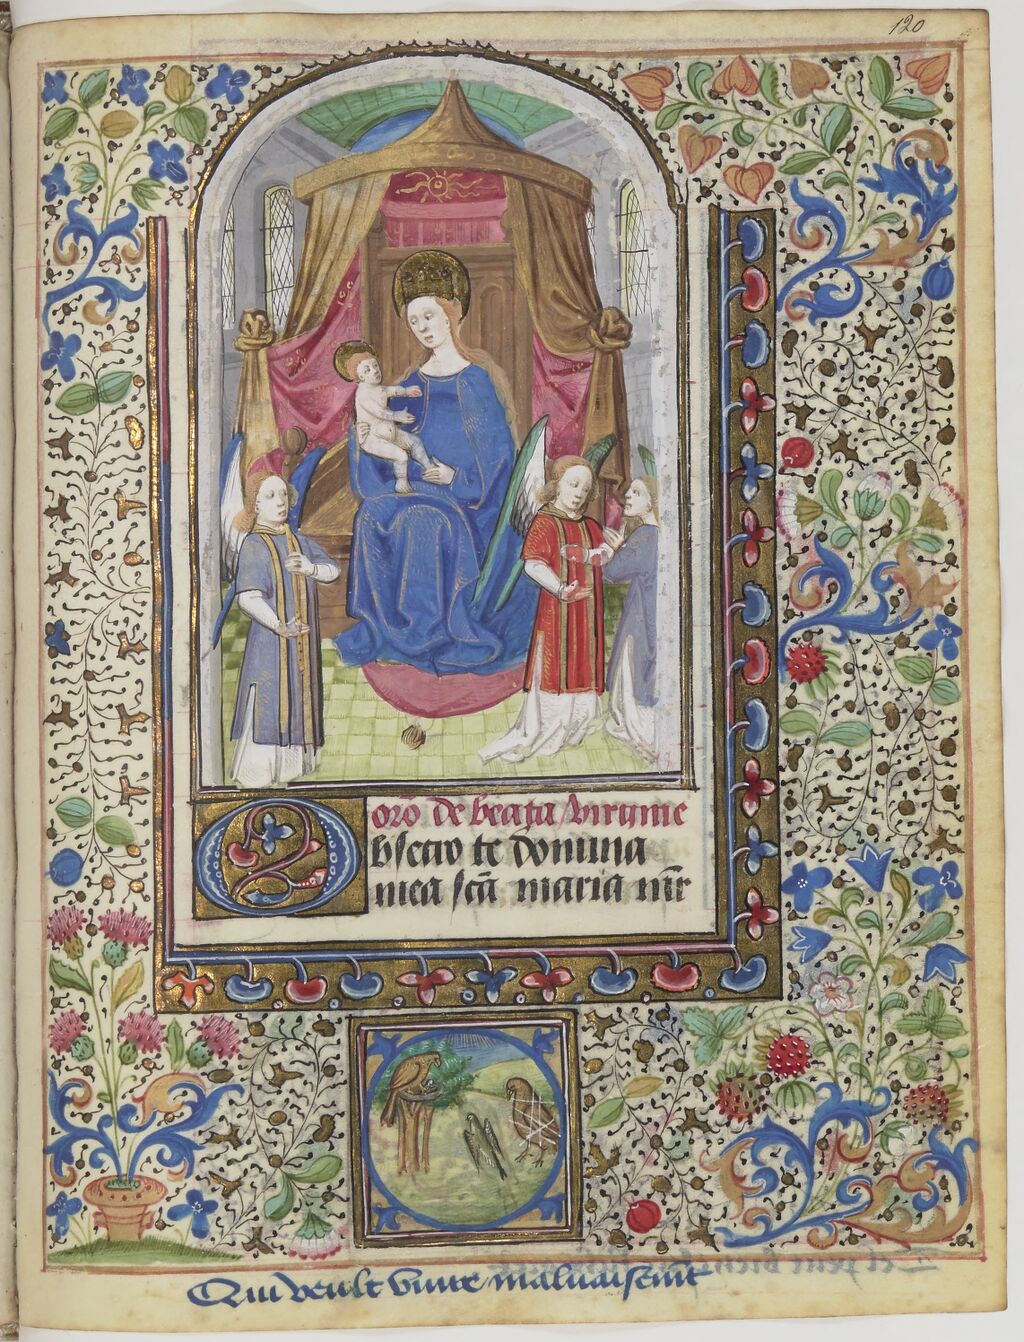 120
oro de beata virgine
Obsecro te domina
mea sca maria mr
Qui veult vivre malvaisemt